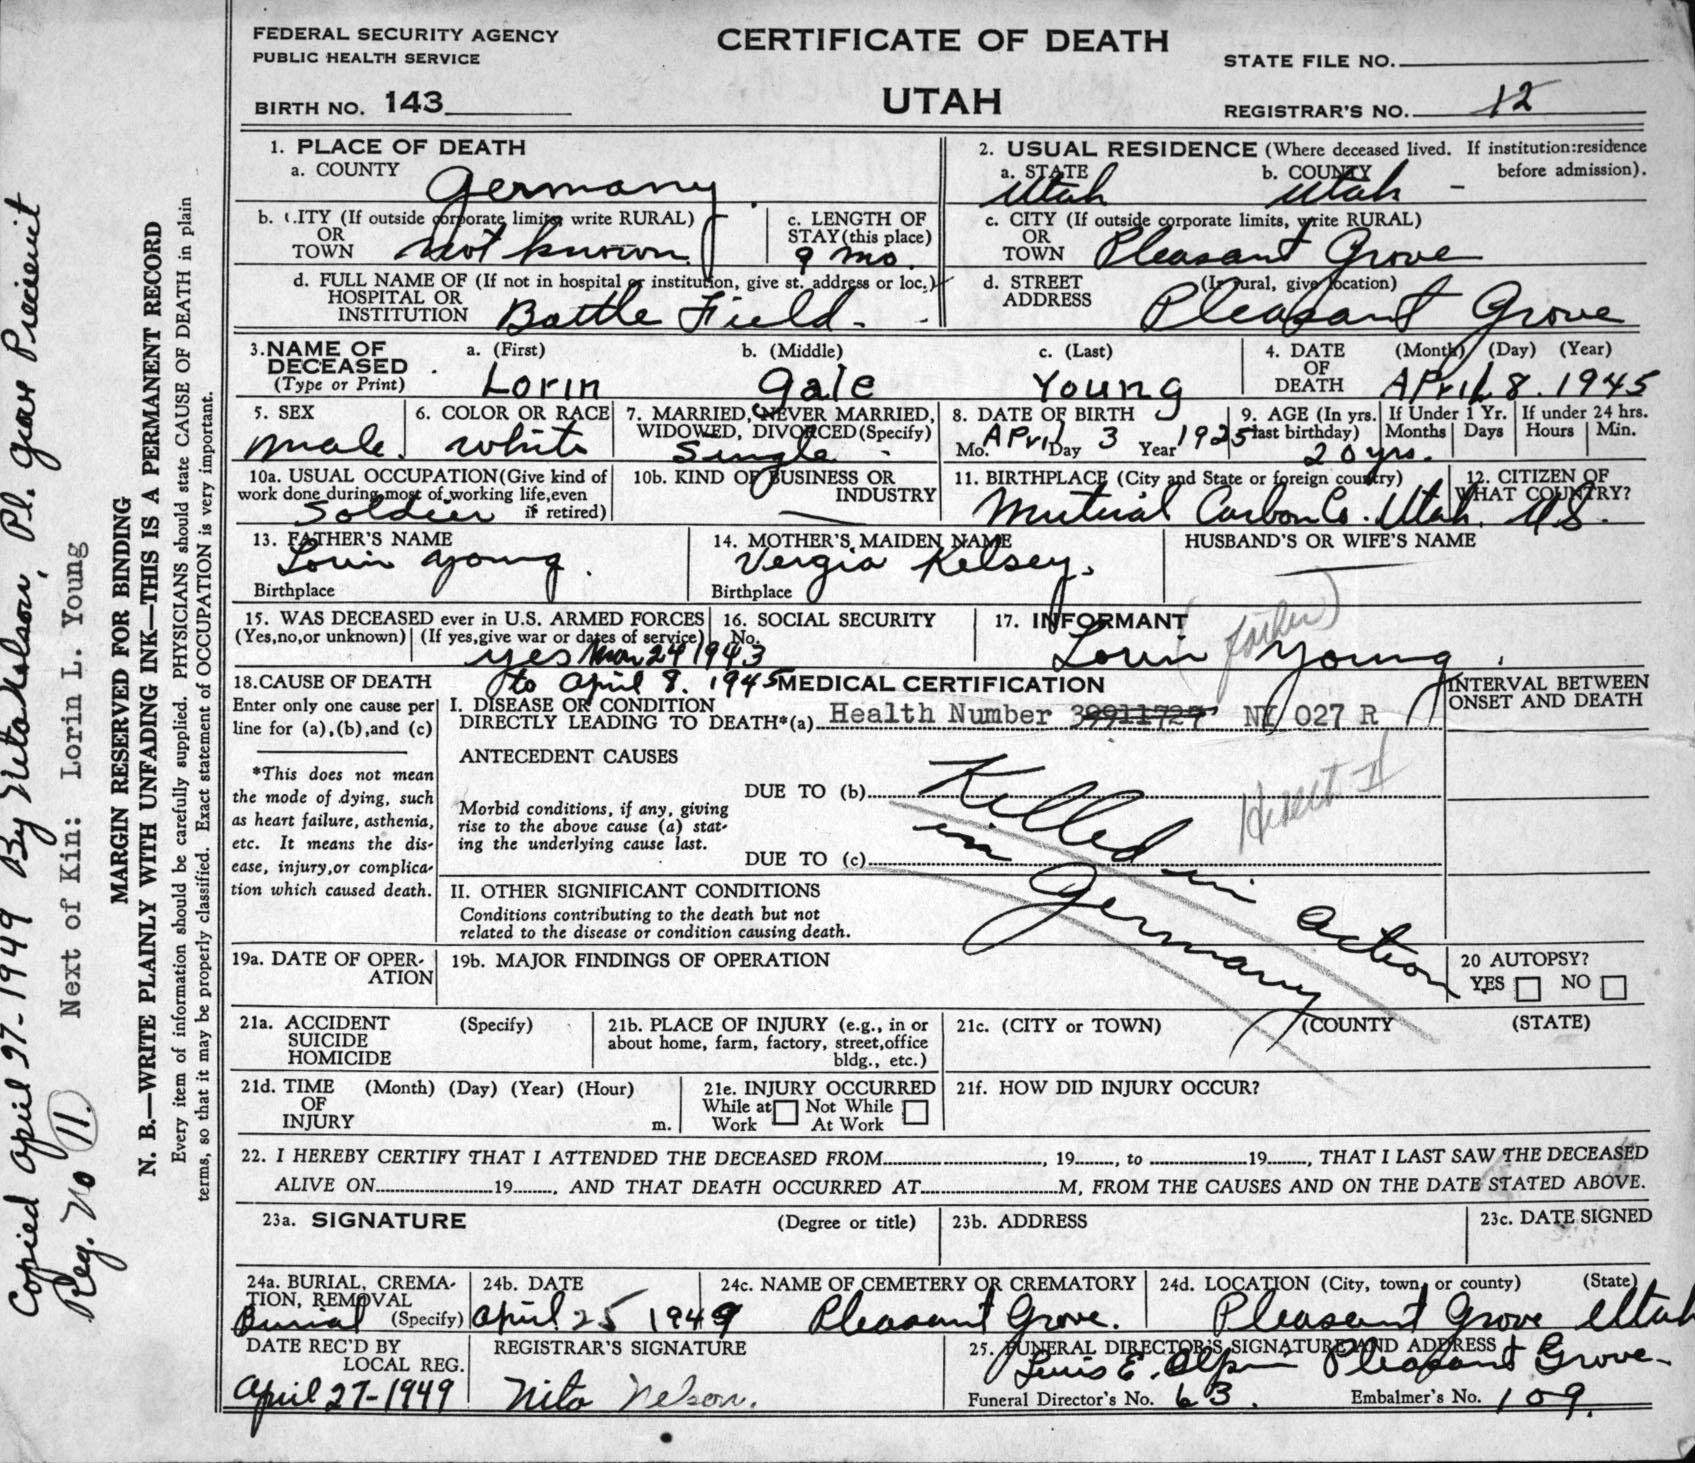 FEDERAL SECURITY AGENCY
PUBLIC HEALTH SERVICE
BIRTH NO. 143
CERTIFICATE OF DEATH
UTAH
STATE FILE NO.
REGISTRAR'S NO. 12
1. PLACE OF DEATH
a. COUNTY Germany
b. CITY (If outside corporate limits write RURAL)
OR
TOWN Not known
c. LENGTH OF
STAY (this place)
9 mo.
d. FULL NAME OF (If not in hospital or institution, give st. address or loc.)
HOSPITAL OR
INSTITUTION Battle Field.
2. USUAL RESIDENCE (Where deceased lived. If institution:residence
before admission).
a. STATE Utah
b. COUNTY Utah
c. CITY (If outside corporate limits, write RURAL)
OR
TOWN Pleasant Grove
d. STREET (If rural, give location)
ADDRESS Pleasant Grove
3. NAME OF
DECEASED
(Type or Print)
a. (First) Lorin
b. (Middle) Gale
c. (Last) Young
4. DATE (Month) (Day) (Year)
OF
DEATH April 8. 1945
5. SEX
male.
6. COLOR OR RACE
white
7. MARRIED, NEVER MARRIED,
WIDOWED, DIVORCED (Specify)
Single
8. DATE OF BIRTH
Mo. April Day 3 Year 1925
9. AGE (In yrs.
last birthday)
20 yrs.
If Under 1 Yr.
Months Days
If under 24 hrs.
Hours Min.
10a. USUAL OCCUPATION (Give kind of
work done during most of working life, even
if retired)
Soldier
10b. KIND OF BUSINESS OR
INDUSTRY
11. BIRTHPLACE (City and State or foreign country)
Mutual Carbon Co. Utah.
12. CITIZEN OF
WHAT COUNTRY?
U.S.
13. FATHER'S NAME
Lorin Young.
Birthplace
14. MOTHER'S MAIDEN NAME
Vergia Kelsey.
Birthplace
HUSBAND'S OR WIFE'S NAME
15. WAS DECEASED ever in U.S. ARMED FORCES
(Yes, no, or unknown) (If yes, give war or dates of service)
yes Mar 24 1943
to April 8. 1945
16. SOCIAL SECURITY
No.
17. INFORMANT
(father)
Lorin Young.
18. CAUSE OF DEATH
Enter only one cause per
line for (a), (b), and (c)
*This does not mean
the mode of dying, such
as heart failure, asthenia,
etc. It means the dis-
ease, injury, or complica-
tion which caused death.
MEDICAL CERTIFICATION
INTERVAL BETWEEN
ONSET AND DEATH
I. DISEASE OR CONDITION
DIRECTLY LEADING TO DEATH*(a) Health Number 39911727 NI 027 R
ANTECEDENT CAUSES
Morbid conditions, if any, giving
rise to the above cause (a) stat-
ing the underlying cause last.
DUE TO (b)
DUE TO (c)
Killed in action
in Germany
II. OTHER SIGNIFICANT CONDITIONS
Conditions contributing to the death but not
related to the disease or condition causing death.
19a. DATE OF OPER-
ATION
19b. MAJOR FINDINGS OF OPERATION
20 AUTOPSY?
YES NO
21a. ACCIDENT (Specify)
SUICIDE
HOMICIDE
21b. PLACE OF INJURY (e.g., in or
about home, farm, factory, street, office
bldg., etc.)
21c. (CITY or TOWN) (COUNTY (STATE)
21d. TIME (Month) (Day) (Year) (Hour)
OF
INJURY m.
21e. INJURY OCCURRED
While at Work Not While At Work
21f. HOW DID INJURY OCCUR?
22. I HEREBY CERTIFY THAT I ATTENDED THE DECEASED FROM , 19 , to 19 , THAT I LAST SAW THE DECEASED
ALIVE ON 19 , AND THAT DEATH OCCURRED AT M, FROM THE CAUSES AND ON THE DATE STATED ABOVE.
23a. SIGNATURE (Degree or title)
23b. ADDRESS
23c. DATE SIGNED
24a. BURIAL, CREMA-
TION, REMOVAL
(Specify)
Burial
24b. DATE
April 25 1949
24c. NAME OF CEMETERY OR CREMATORY
Pleasant Grove.
24d. LOCATION (City, town, or county) (State)
Pleasant Grove Utah
DATE REC'D BY
LOCAL REG.
April 27-1949
REGISTRAR'S SIGNATURE
Nita Nelson.
25. FUNERAL DIRECTOR'S SIGNATURE AND ADDRESS
Pleasant Grove.
Funeral Director's No. 63.
Embalmer's No. 109.
Copied April 27-1949 By Nita Nelson, Pl. Grove Precinct
Reg. No 11.
Next of Kin: Lorin L. Young
MARGIN RESERVED FOR BINDING
N. B.—WRITE PLAINLY WITH UNFADING INK—THIS IS A PERMANENT RECORD
Every item of information should be carefully supplied. PHYSICIANS should state CAUSE OF DEATH in plain
terms, so that it may be properly classified. Exact statement of OCCUPATION is very important.